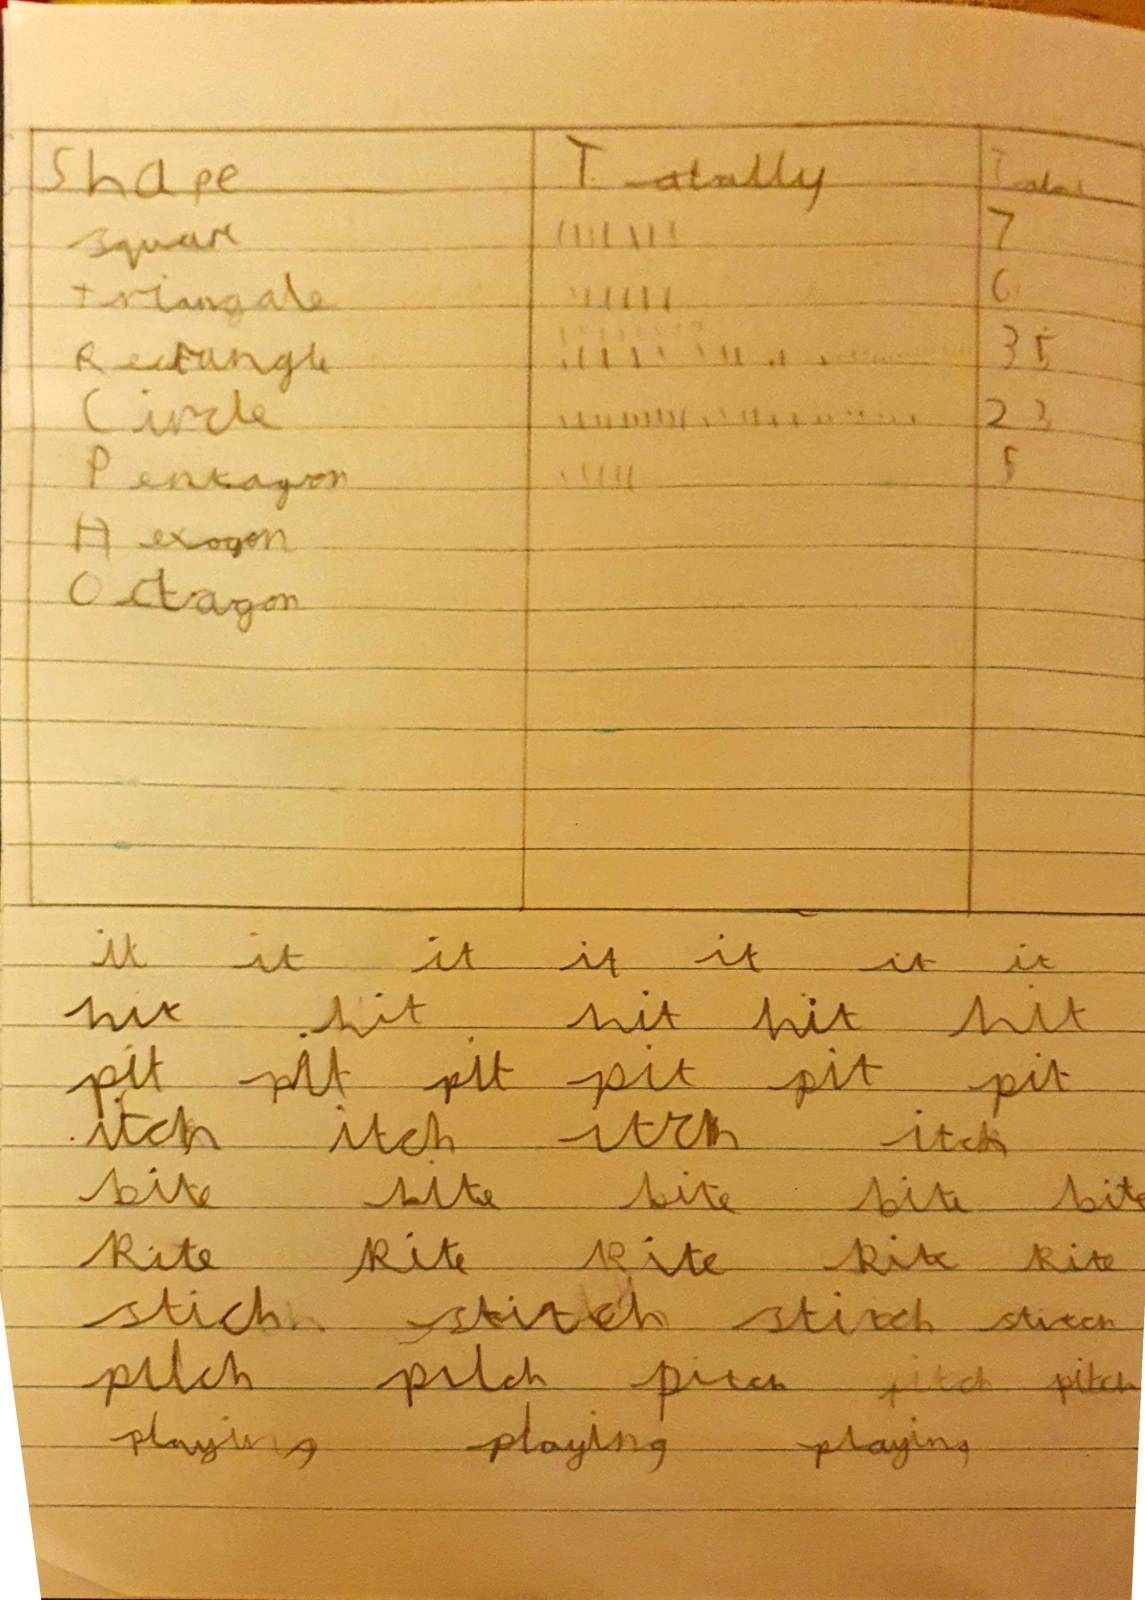 Shape Totally Total
square 7
triangale 6
Rectangle 35
Circle 23
Pentagon 5
Hexogon
Octagon
it it it it it it it
hit hit hit hit hit
pit pit pit pit pit pit
itch itch itch itch
bite bite bite bite bite
Kite Kite Kite Kite Kite
stich stitch stitch stitch
pitch pitch pitch pitch pitch
playing playing playing